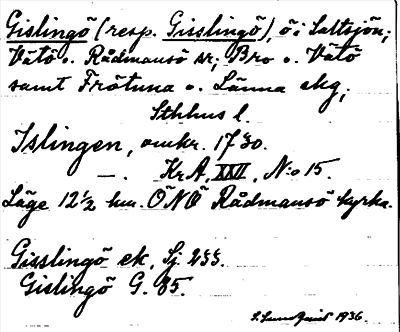 Gislingö (resp. Gisslingö), ö i Saltsjön;
Vätö o. Rådmansö sr; Bro o. Vätö
samt Frötuna o. Länna skg;
Sthlms l.
Islingen, omkr. 1730.
— . KrA, XXVI, N:o 15.
Läge 12½ km. ÖNÖ Rådmansö kyrka.
Gisslingö ek. Sj. 233.
Gislingö G. 85.
S. Lundquist 1936.